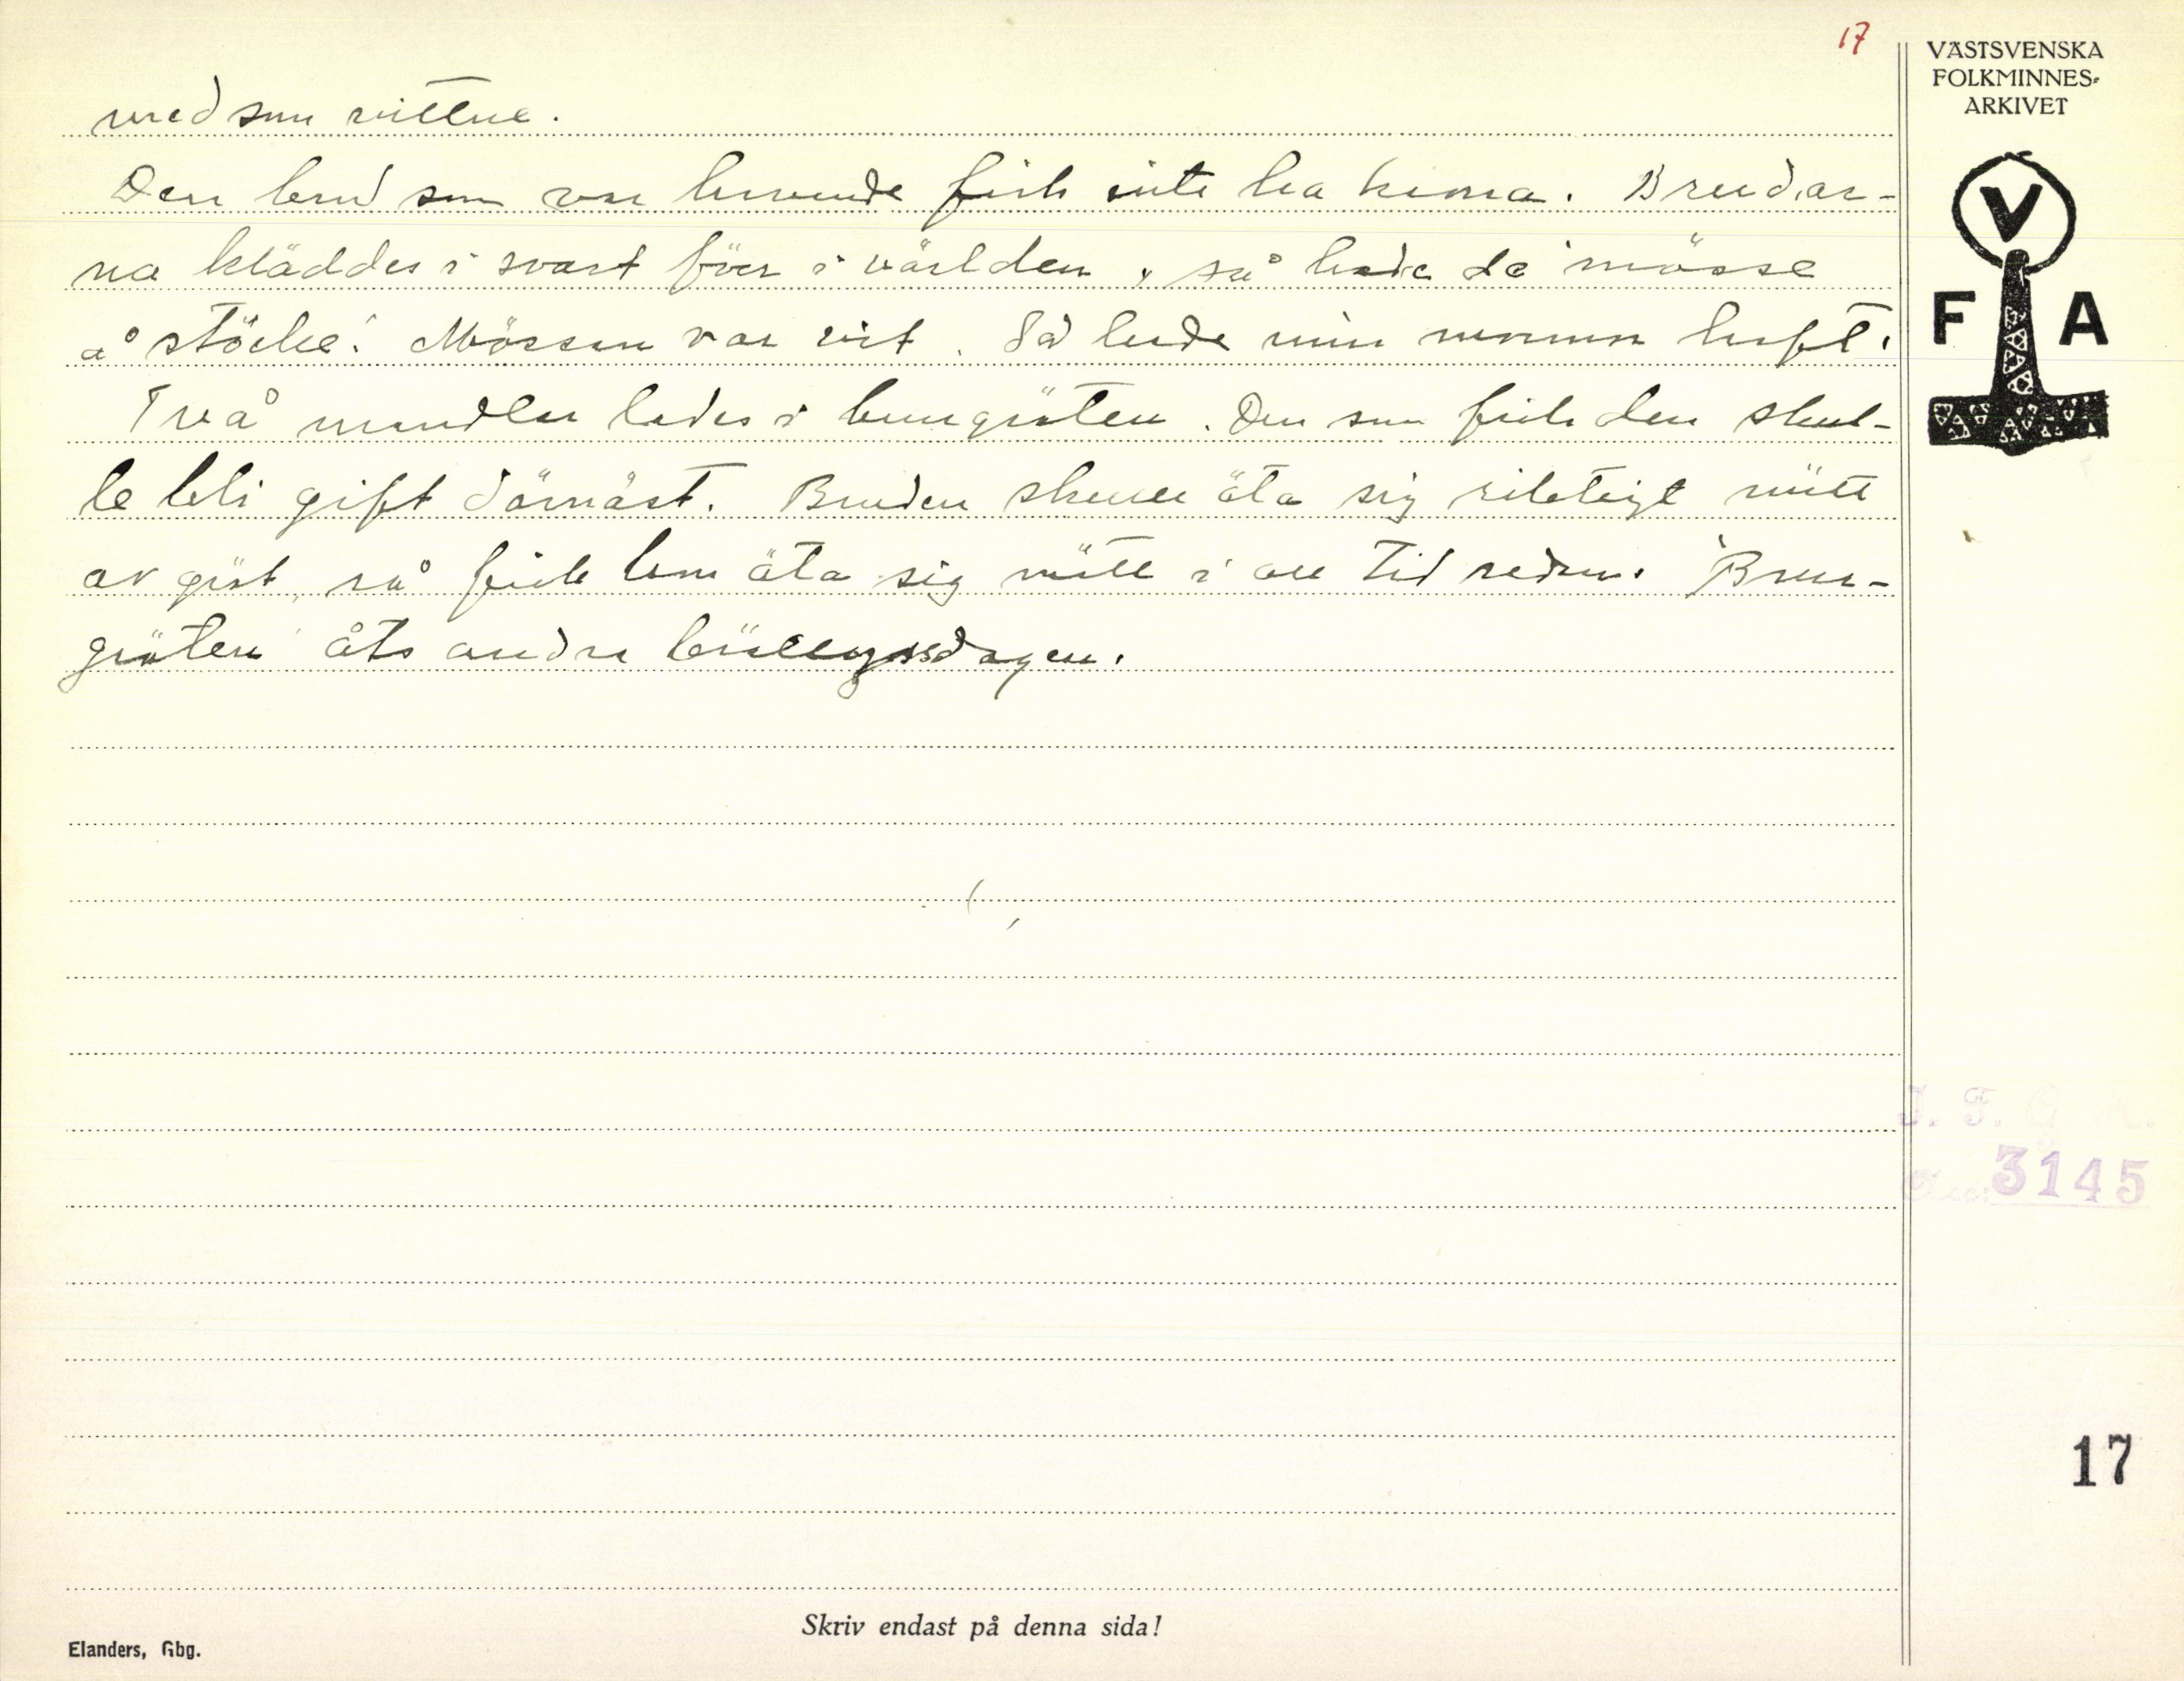 17
VÄSTSVENSKA
FOLKMINNES-
ARKIVET
V
F A
med som vittne.
Den brud som var havande fick inte ha krona. Brudar-
na kläddes i svart förr i världen, så hade de 'mösse
å stöcke'. Mössan var vit. Så hade min mormor haft.
Två mandlar lades i brurgröten. Den som fick den skul-
le bli gift därnäst. Bruden skulle äta sig riktigt mätt
av gröt, så fick hon äta sig mätt i all tid sedan. 'Brur-
gröten' åts andra bröllopsdagen.
3145
17
Skriv endast på denna sida!
Elanders, Gbg.